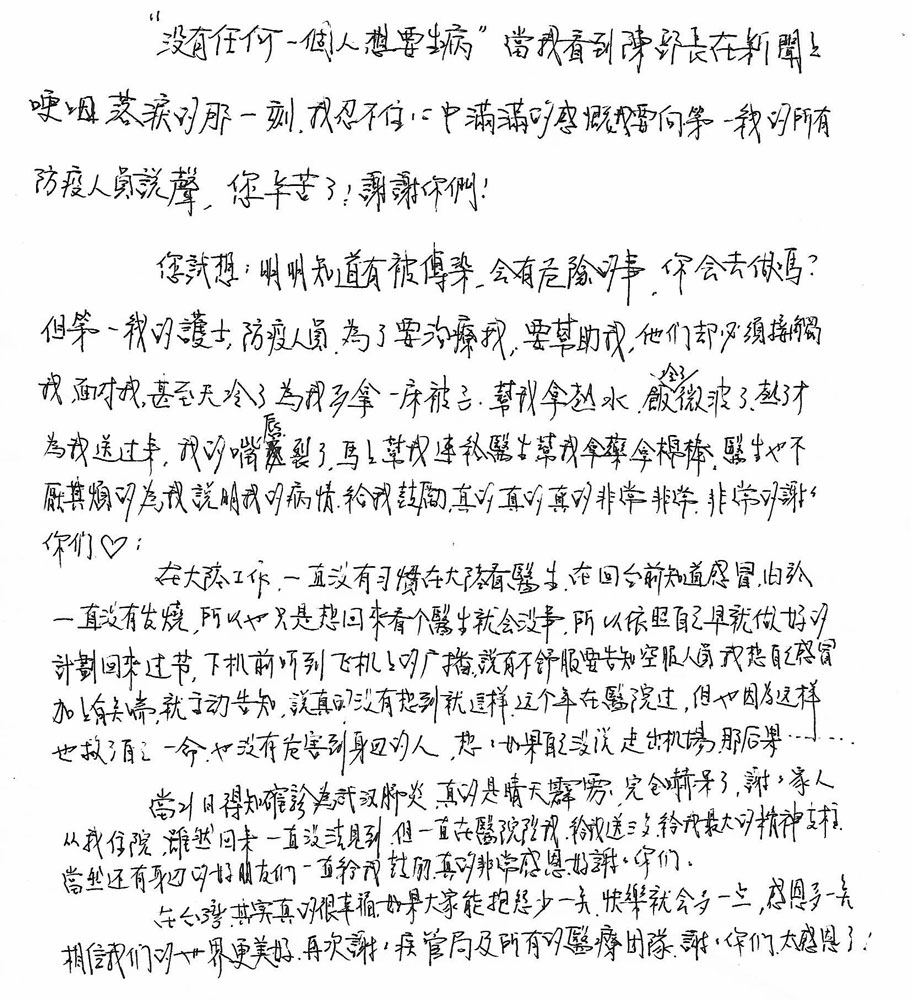 “没有任何一個人想要生病”當我看到陳部長在新聞上
哽咽落淚的那一刻,我忍不住心中滿滿的感慨我要向第一線的所有
防疫人員說聲,您辛苦了!謝謝你們!
您試想:明明知道有被傳染、会有危險的事,你会去做嗎?
但第一線的護士,防疫人員,為了要治療我,要幫助我,他们却必須接觸
我面对我,甚至天冷了為我多拿一床被子.幫我拿熱水,飯冷了微波了,熱了才
為我送过来,我的嘴唇裂了,馬上幫我連絡醫生幫我拿藥拿棉棒,醫生也不
厭其煩的為我說明我的病情.給我鼓勵,真的真的真的非常非常.非常的謝謝
你们♡:
在大陸工作,一直沒有习慣在大陸看醫生,在回台前知道感冒,由於
一直没有发燒,所以也只是想回來看个醫生就会没事,所以依照自己早就做好的
計劃回來过节,下机前听到飞机上的广播,說有不舒服要告知空服人員我想自己感冒
加上有失嗅,就主动告知,說真的没有想到就這样,这个年在醫院过,但也因為这样
也救了自己一命,也没有危害到身边的人,想想如果自己没说走出机場,那后果……
當21日得知確診為武汉肺炎,真的是晴天霹靂,完全嚇呆了,謝謝家人
从我住院,雖然回來一直没法見到,但一直在醫院陪我,給我送三文,給我最大的精神支柱.
當然还有身边的好朋友们一直給我鼓勵,真的非常感恩.好謝謝你们。
在台灣,其实真的很幸福,如果大家能抱怨少一点,快樂就会多一点,感恩多一点
相信我们的世界更美好,再次謝謝疾管局及所有的醫療团隊,謝謝你们,太感恩了!